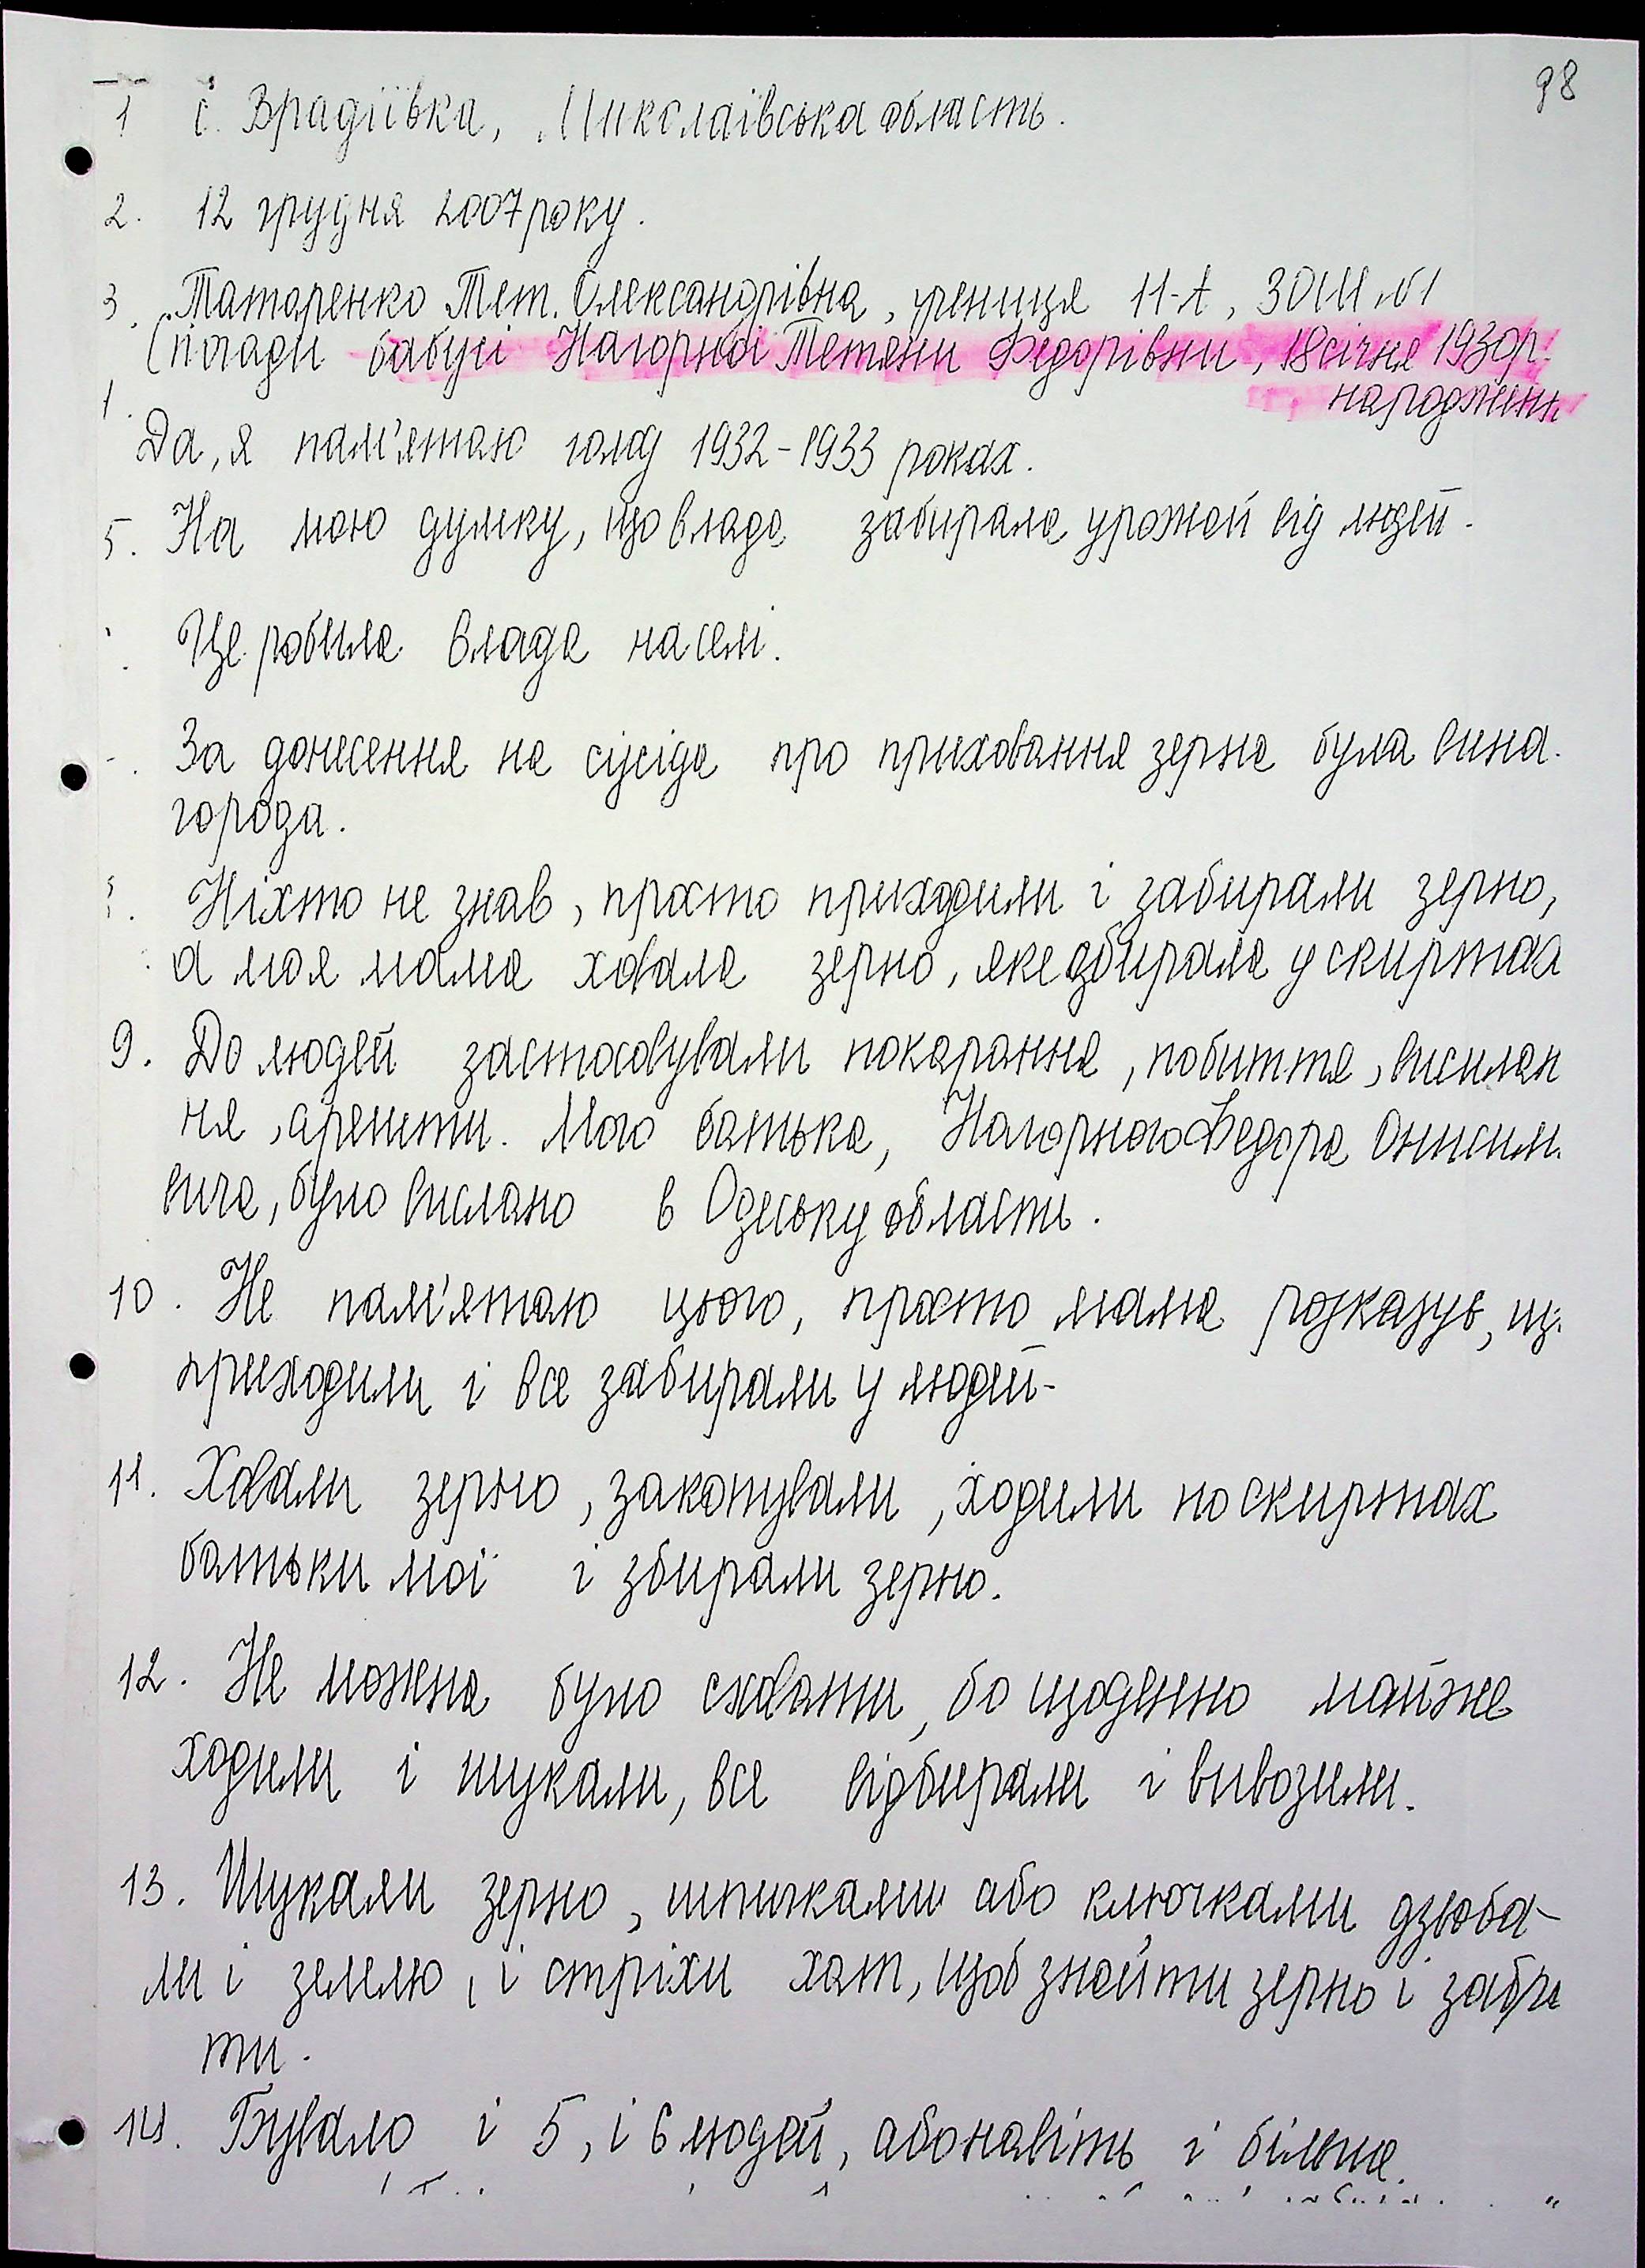 98
1 с. Врадіївка, Миколаївська область.
2. 12 грудня 2007 року.
3. Татаренко Тет. Олександрівна, учениця 11-А, ЗОШ №1
(спогади бабусі Нагорної Тетяни Федорівни, 18 січня 1930 р.
народження
1.
Да, я пам'ятаю голод 1932-1933 роках.
5. На мою думку, що влада забирала урожай від людей.
Це робила влада на селі.
За донесення на сусіда про приховання зерна була вина-
города.
Ніхто не знав, просто приходили і забирали зерно,
а моя мама ховала зерно, яке збирала у скиртах
9. До людей застосовували покарання, побиття, висилан
ня, арешти. Мого батька, Нагорного Федора Онисим.
вича, було вислано в Одеську область.
10. Не пам'ятаю цього, просто мама розказув, що
приходили і все забирали у людей-
11. Ховали зерно, закопували, ходили по скиртах
батьки мої і збирали зерно.
12. Не можна було сховати, бо щоденно майже
ходили і шукали, все відбирали і вивозили.
13. Шукали зерно, шпичками або ключками дзюба-
ли і землю, і стріхи хат, щоб знайти зерно і забра
ти.
14. Бувало і 5, і 6 людей, або навіть і більше.